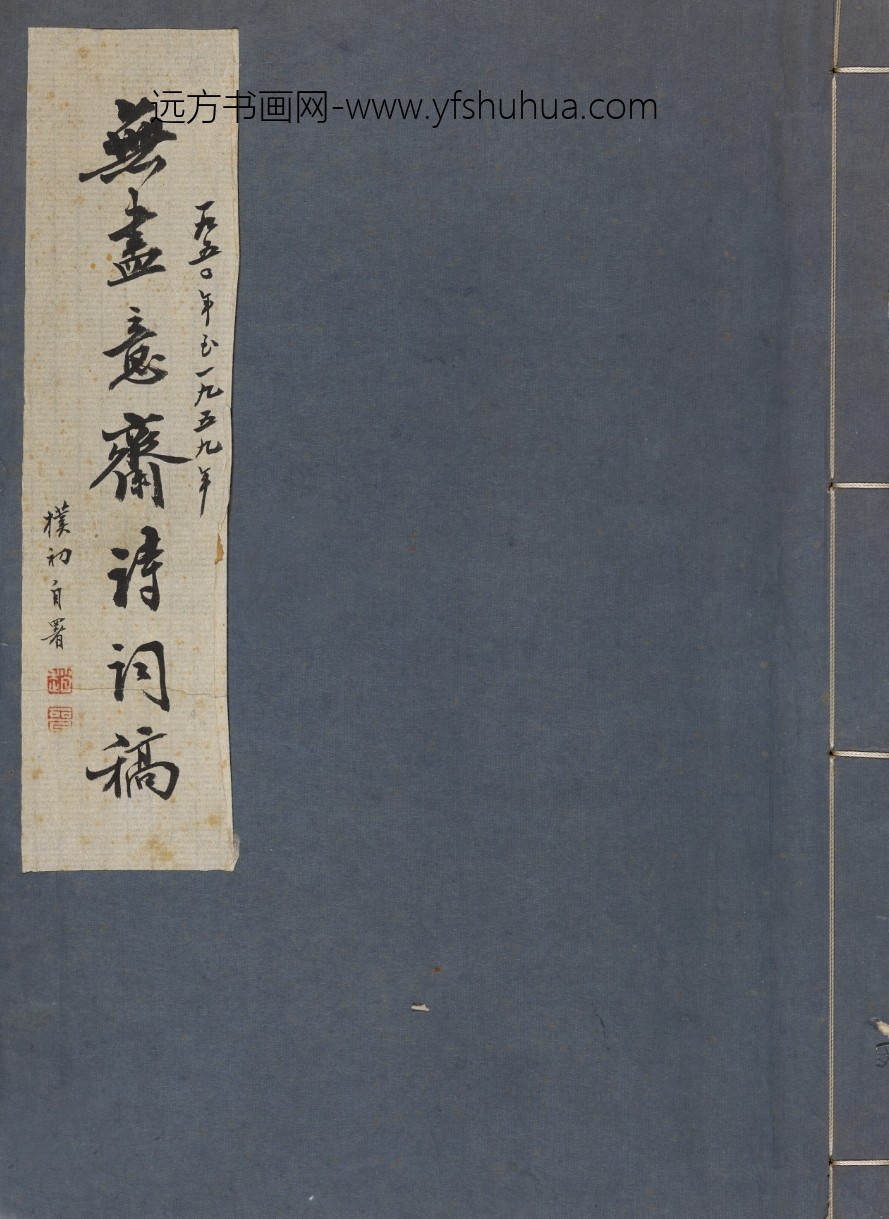 远方书画网-www.yfshuhua.com
一九五〇年至一九五九年
無盡意齋诗词稿
樸初自署